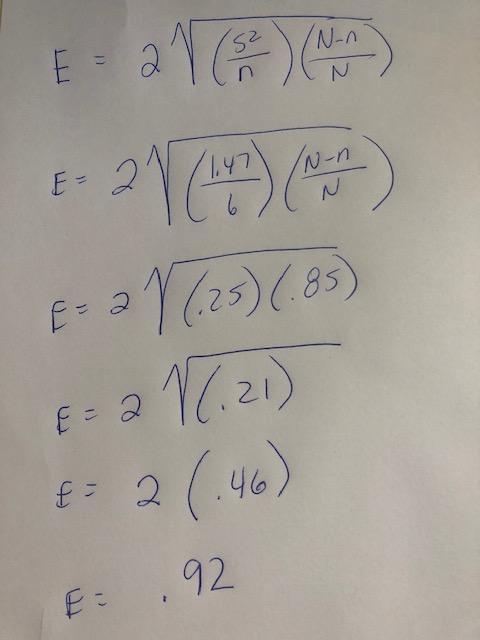 E = 2√(S²/n)(N-n/N)
E = 2√(1.47/6)(N-n/N)
E = 2√(.25)(.85)
E = 2√(.21)
E = 2(.46)
E = .92